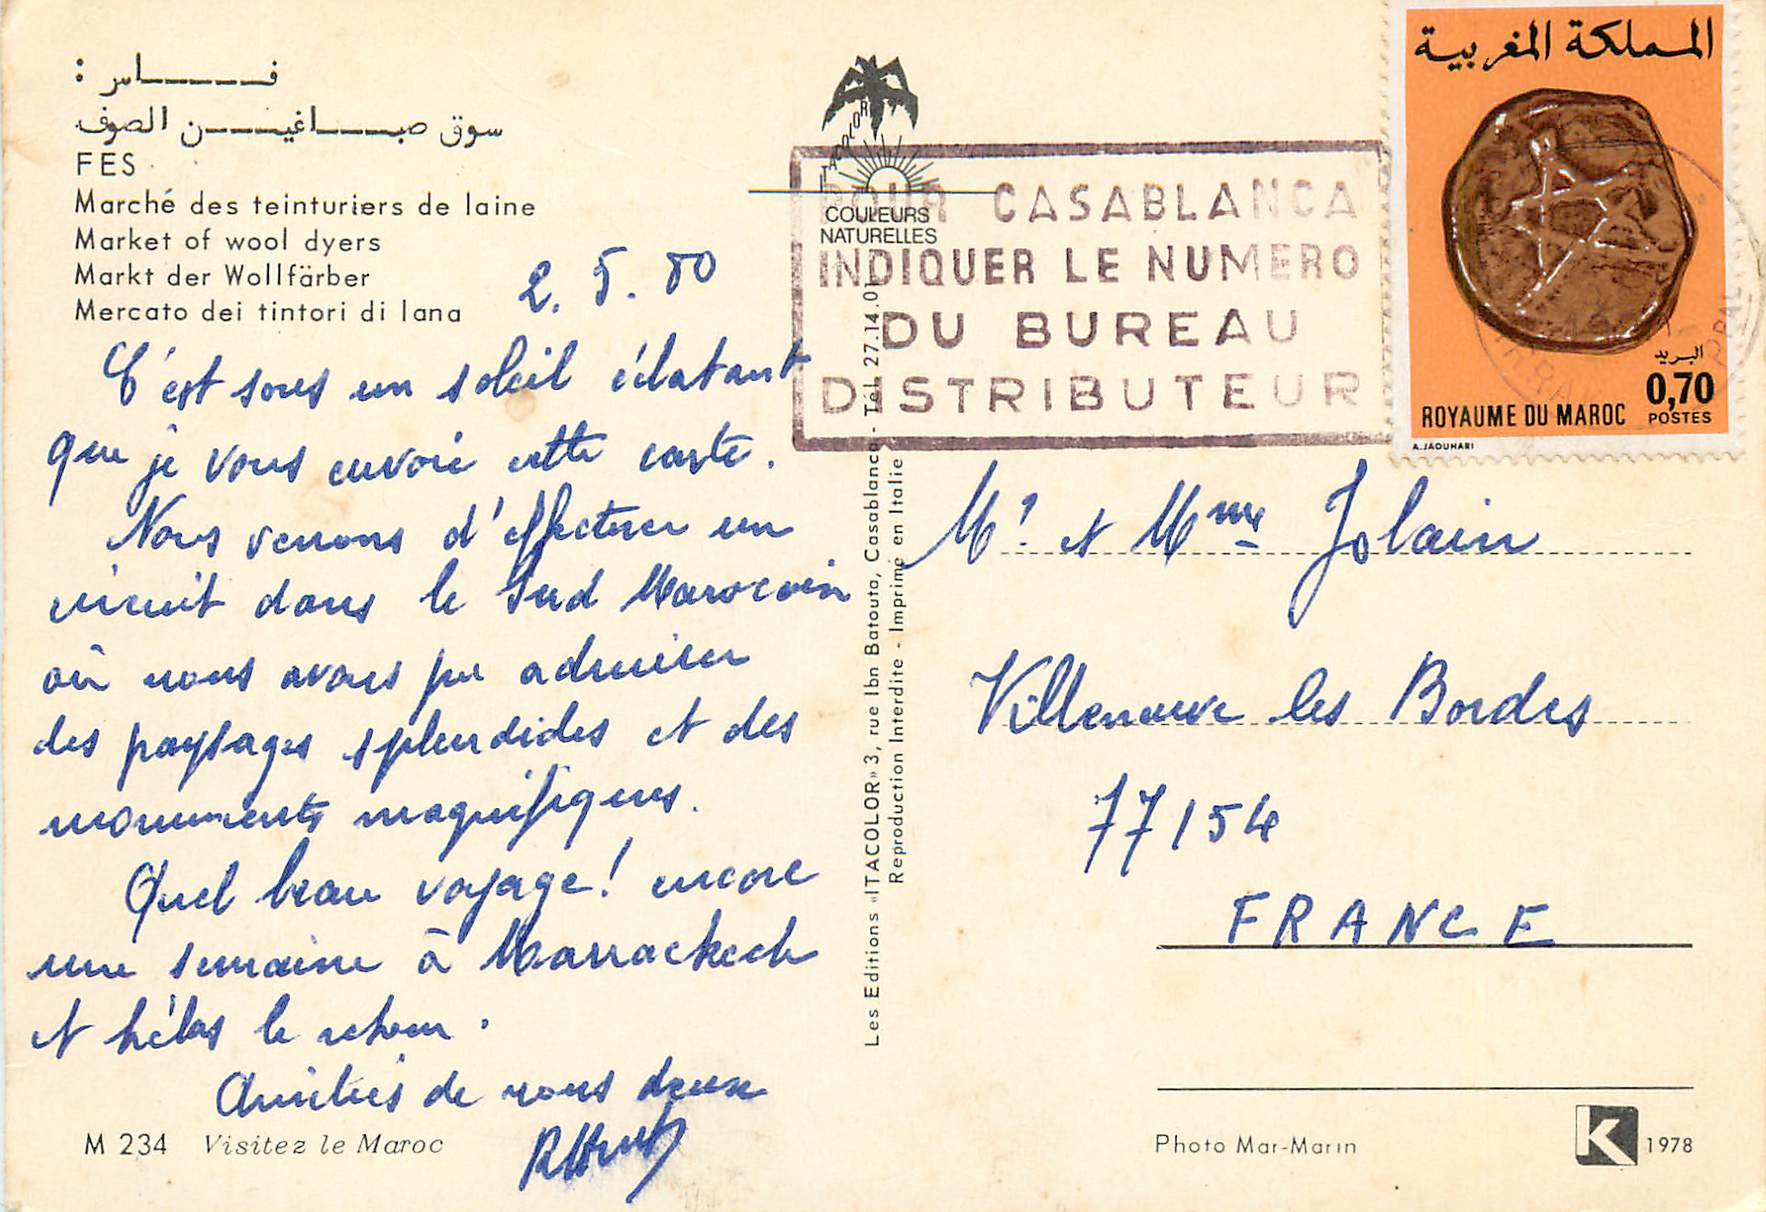 فـــاس :
سوق صبـــاغيـــن الصوف
FES
Marché des teinturiers de laine
Market of wool dyers
Markt der Wollfärber
Mercato dei tintori di lana
2. 5. 80
C'est sous un soleil éclatant
que je vous envoie cette carte.
Nous venons d'effectuer un
circuit dans le Sud Marocain
où nous avons pu admirer
des paysages splendides et des
monuments magnifiques.
Quel beau voyage ! encore
une semaine à Marrackech
et hélas le retour.
Amitiés de nous deux
M 234 Visitez le Maroc
ITACOLOR
COULEURS
NATURELLES
POUR CASABLANCA
INDIQUER LE NUMERO
DU BUREAU
DISTRIBUTEUR
Les Editions «ITACOLOR» 3, rue Ibn Batouta, Casablanca - Tél. 27.14.01
Reproduction Interdite - Imprimé en Italie
المملكة المغربية
البريد
0,70
POSTES
ROYAUME DU MAROC
A.JAOUHARI
Mr et Mme Jolain
Villeneuve les Bordes
77154
FRANCE
Photo Mar-Marin
K 1978